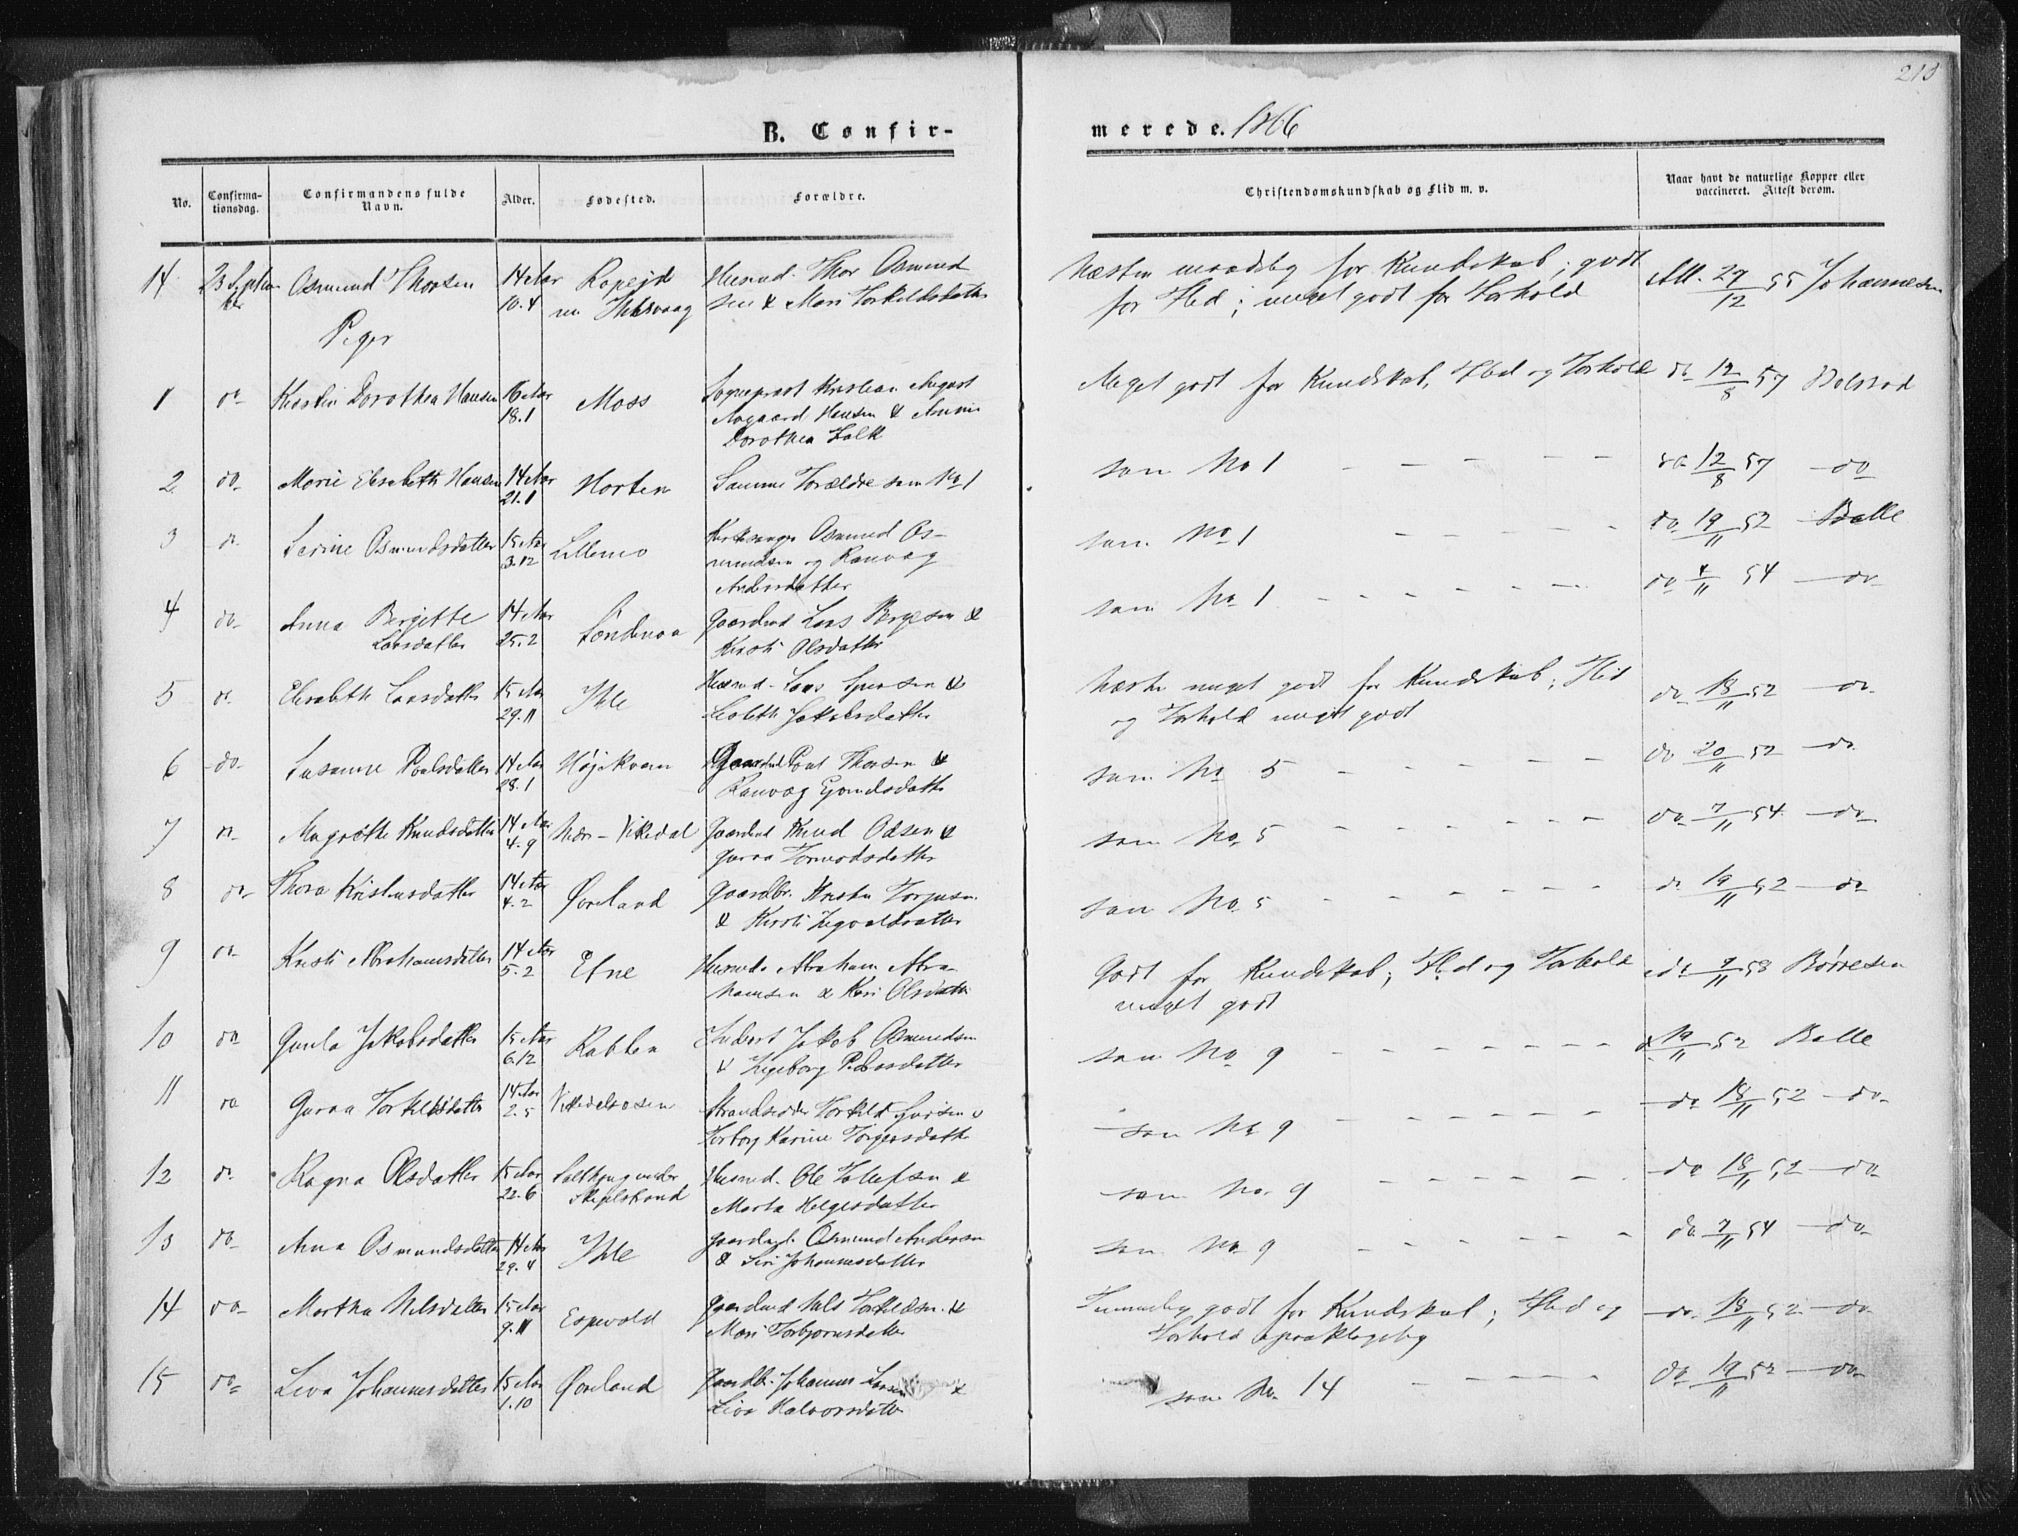 213
B. Confir-
merede. 1866
No.
Confirma-
tionsdag.
Confirmandens fulde
Navn.
Alder.
Fødested.
Forældre.
Christendomskundskab og Flid m. v.
Naar havt de naturlige Kopper eller
vaccineret. Attest derom.
14 23 Septem Osmund Thorsen 14 Aar Husmd. Thor Osmund
ber 10.4 sen & Mari Torkildsdatter
Næsten maadelig for Kundskab; godt
for Flid; meget godt for Forhold
Att. 29/12 55 Johannesen
Piger
1 do Kirstin Dorothea Hansen 16 Aar Moss Sogneprest Kristian August
18.1 Aagaard Hansen & Annie
Dorothea Falk
Meget godt for Kundskab, Flid og Forhold do 12/8 57
2 do Marie Elisabeth Hansen 14 Aar Horten Samme Forældre som No 1
21.1
som No 1 do 12/8 57 do
3 do Serine Osmundsdatter 15 Aar Lillemo Kirkesanger Osmund Os-
3.12 mundsen og Ranvæg
Andersdatter
som No 1 do 19/11 52 Balle
4 do Anna Bergitte 14 Aar Søndenaa Gaardmd Lars Børgesen &
Larsdatter 25.2 Kirsti Olsdatter
som No 1 do 4/11 54 do
5 do Elisabeth Larsdatter 15 Aar Ihle Husmd. Lars Iversen &
29.11 Lisbeth Jakobsdatter
Næsten meget godt for Kundskab; Flid
og Forhold meget godt
do 18/11 52 do
6 do Susanne Poulsdatter 14 Aar Højekvam Gaardmd Poul Thorsen &
28.1 Ranvæg
som No 5 do 20/11 52 do
7 do Magrethe Knudsdatter 14 Aar Nær-Vikedal Gaardmd Knud Odsen &
4.9 Guroa Tormodsdatter
som No 5 do 7/11 54 do
8 do Thora Kristensdatter 14 Aar Øvreland Gaardbr. Kristen Torgersen
4.2 & Kirsti
som No 5 do 19/11 52 do
9 do Kristi Abrahamsdatter 14 Aar Etne Husmd. Abraham Abra-
5.2 hamsen & Kari Olsdatter
Godt for Kundskab; Flid og Forhold
meget godt
do 9/11 58 Børresen
10 do Gunla Jakobsdatter 15 Aar Rablen Inderst Jakob Osmundsen
6.12 & Ingeborg Pedersdatter
som No 9 do 19/11 52 Balle
11 do Guroa Torkildsdatter 14 Aar Vikedalsosen Strandsidder Torkild Sjursen &
2.5 Torborg Karine Torgersdatter
som No 9 do 18/11 52 do
12 do Ragna Olsdatter 15 Aar under Husmd. Ole Tollefsen &
22.6 Skjelstrand Marta Helgesdatter
som No. 9 do 18/11 52 do
13 do Ana Osmundsdatter 14 Aar Ihle Gaardmd. Osmund Andersen
29.4 & Siri Johannesdatter
som No 9 do 7/11 54 do
14 do Martha Nilsdatter 15 Aar Espevold Gaardmd Nils Torkildsen &
9.11 Mari Torbjørnsdatter
Temmelig godt for Kundskab; Flid og
Forhold upaaklagelig
do 18/11 52 do
15 do Liva Johannesdatter 15 Aar Øvreland Gaardbr. Johannes Larsen &
1.10 Liva Halvorsdatter
som No 14 do 19/11 52 do